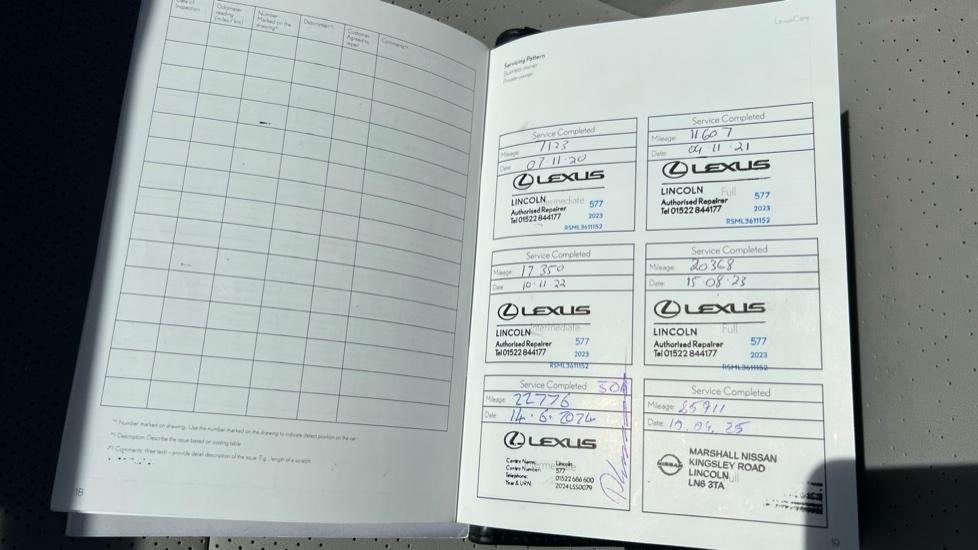 Date of
Inspection
Odometer
reading
(miles / km)
Number
Marked on the
drawing*¹
Description*²
Customer
Agreed to
repair
Comments*³
*¹ Number marked on drawing: Use the number marked on the drawing to indicate defect position on the car
*² Description: Describe the issue based on coding table
*³ Comments: free text - provide detail description of the issue. E.g.: length of a scratch
18
LexusCare
Servicing Pattern
Business owner
Private owner
Service Completed
Mileage: 7123
Date: 07.11.20
LEXUS
LINCOLN Intermediate
Authorised Repairer 577
Tel 01522 844177 2023
RSML3611152
Service Completed
Mileage: 11607
Date: 04.11.21
LEXUS
LINCOLN Full
Authorised Repairer 577
Tel 01522 844177 2023
RSML3611152
Service Completed
Mileage: 17350
Date: 10.11.22
LEXUS
LINCOLN Intermediate
Authorised Repairer 577
Tel 01522 844177 2023
RSML3611152
Service Completed
Mileage: 20368
Date: 15.08.23
LEXUS
LINCOLN Full
Authorised Repairer 577
Tel 01522 844177 2023
RSML3611152
Service Completed
Mileage: 22776
Date: 14.6.2024
LEXUS
Centre Name: Lincoln
Centre Number: 577
Telephone: 01522 686 600
Year & URN: 2024LSS0079
Service Completed
Mileage: 25911
Date:
NISSAN
MARSHALL NISSAN
KINGSLEY ROAD
LINCOLN Full
LN6 3TA
19